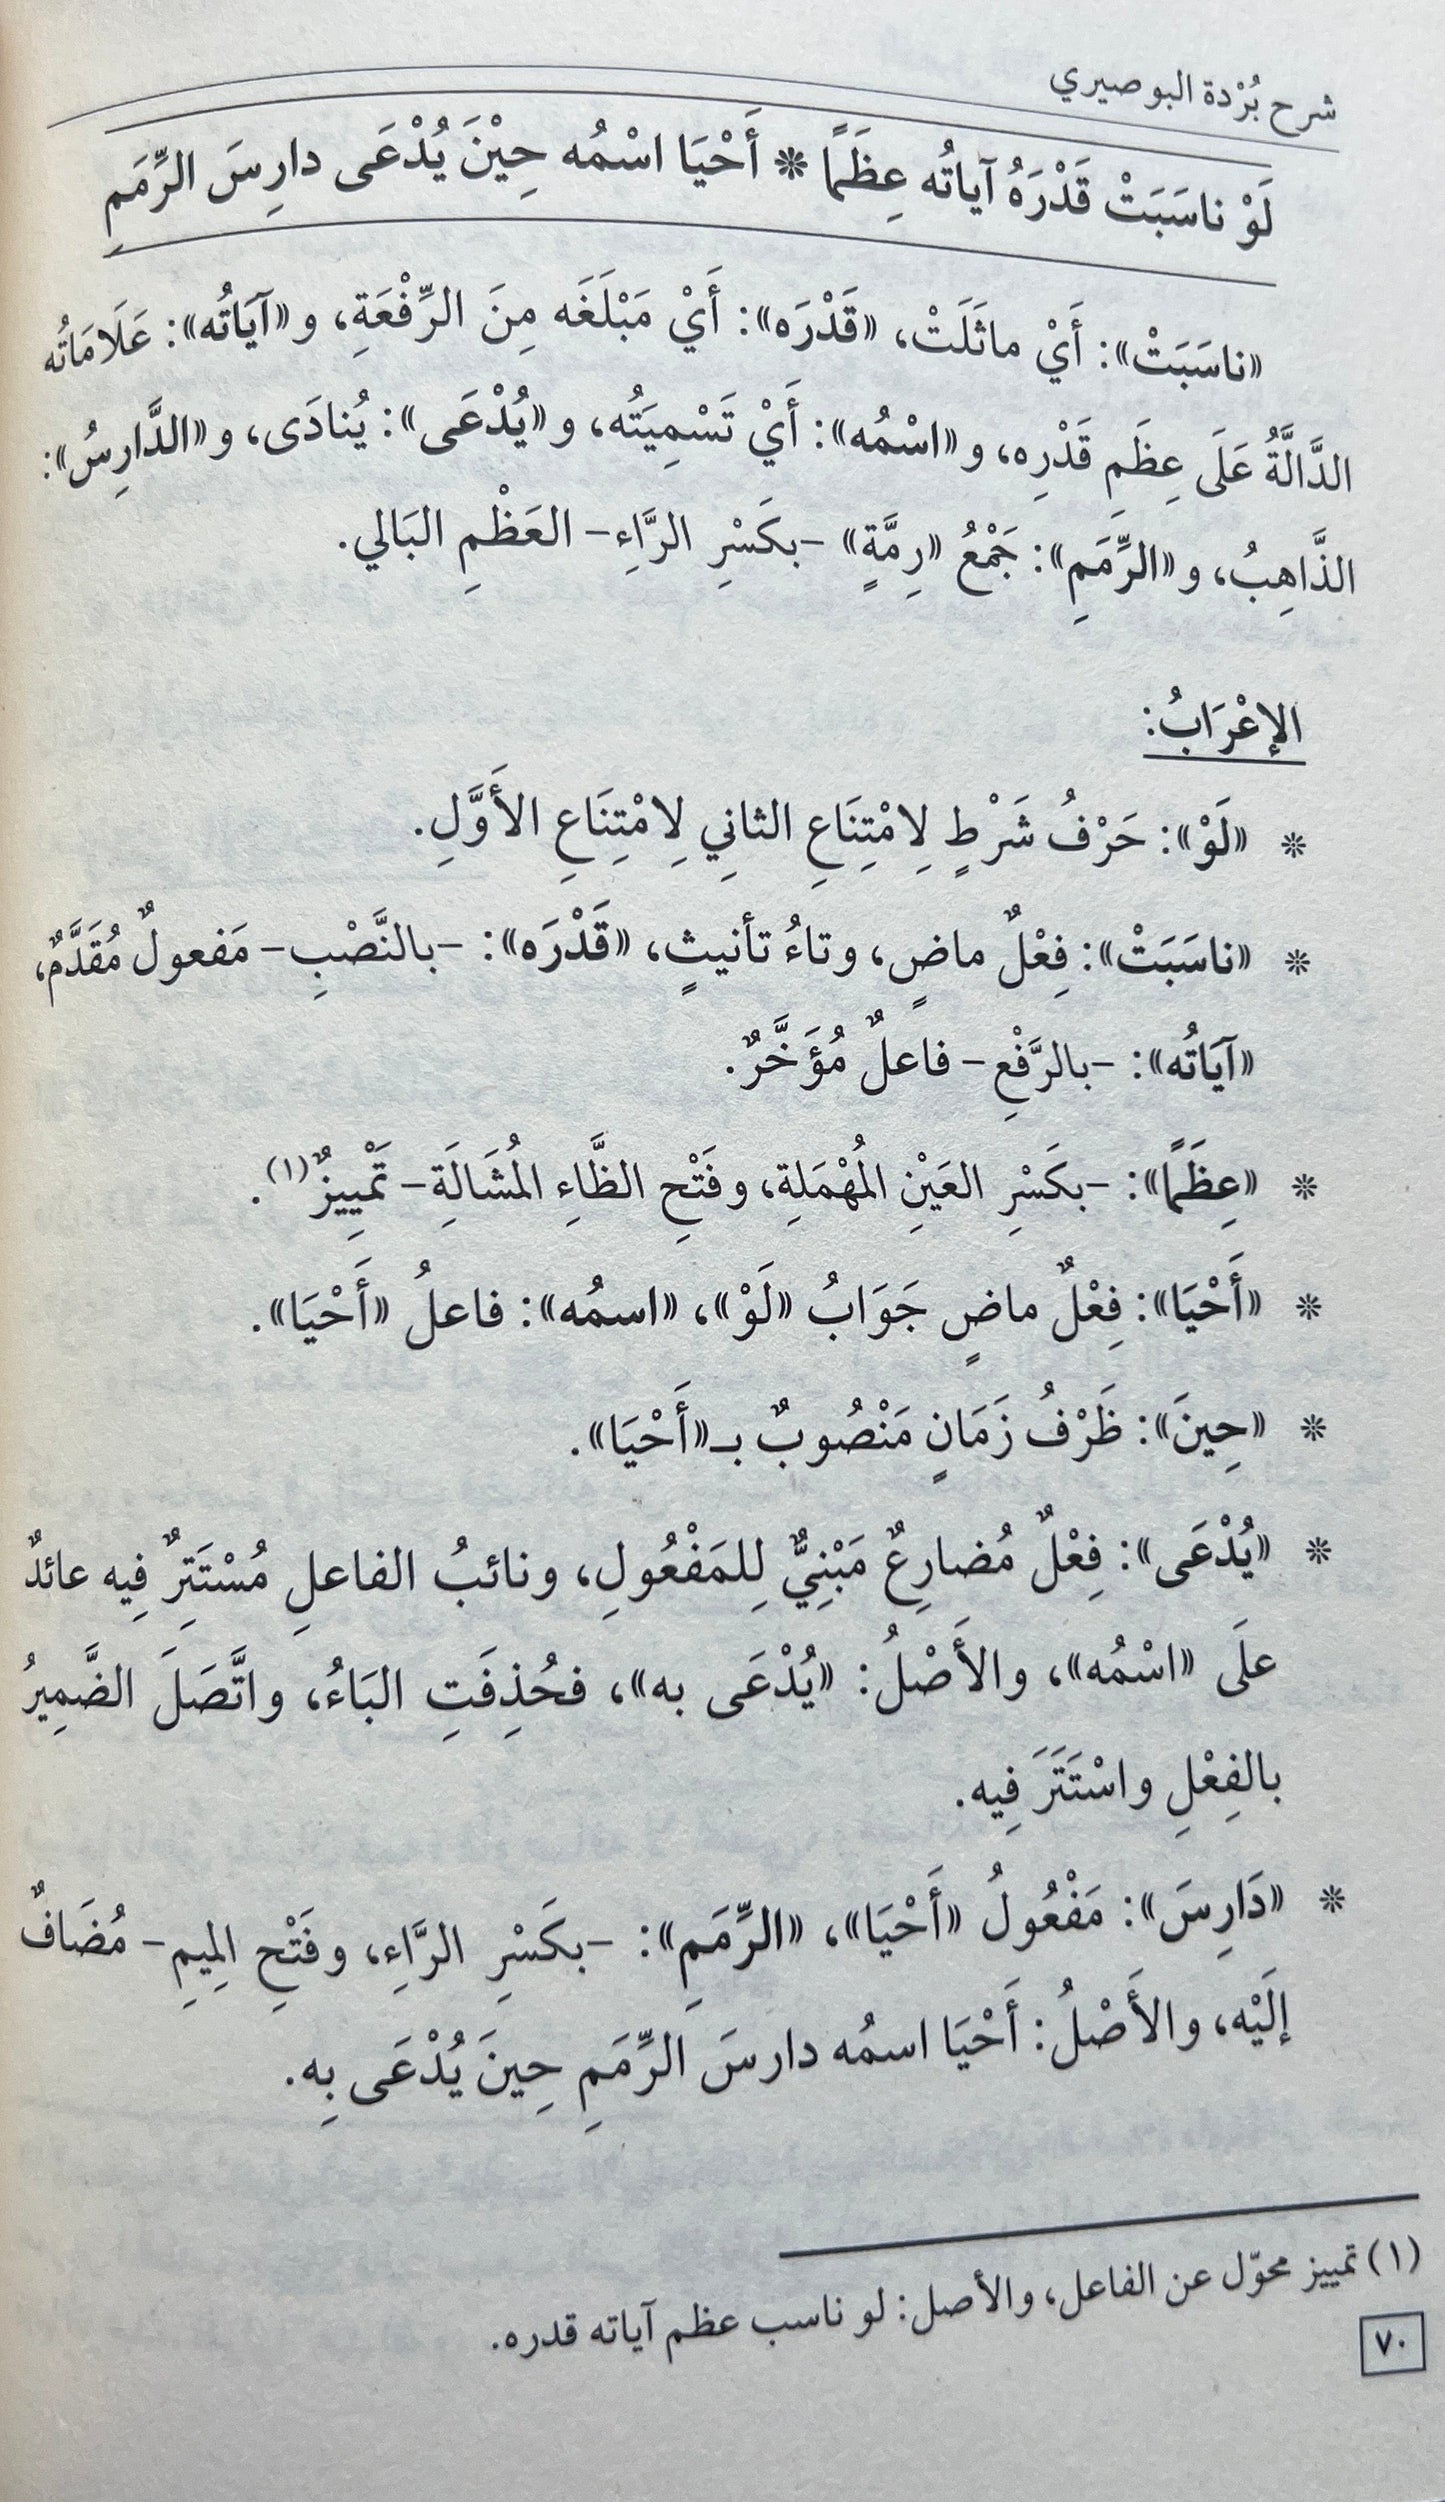 شرح بُرْدة البوصيري
لَوْ ناسَبَتْ قَدْرَهُ آياتُه عِظَمًا * أَحْيَا اسْمُه حِيْنَ يُدْعَى دارِسَ الرِّمَمِ
«ناسَبَتْ»: أَيْ ماثَلَتْ، «قَدْرَه»: أَيْ مَبْلَغَه مِنَ الرِّفْعَةِ، و«آيَاتُه»: عَلَامَاتُه
الدَّالَّةُ عَلَى عِظَمِ قَدْرِه، و«اسْمُه»: أَيْ تَسْمِيَتُه، و«يُدْعَى»: يُنادَى، و«الدَّارِسُ»:
الذَّاهِبُ، و«الرِّمَمِ»: جَمْعُ «رِمَّةٍ» -بكَسْرِ الرَّاءِ- العَظْمِ البَالي.
الإعْرَابُ:
* «لَوْ»: حَرْفُ شَرْطٍ لِامْتِنَاعِ الثانِي لِامْتِنَاعِ الأَوَّلِ.
* «ناسَبَتْ»: فِعْلٌ ماضٍ، وتاءُ تأنيثٍ، «قَدْرَه»: -بالنَّصْبِ- مَفعولٌ مُقَدَّمٌ،
«آيَاتُه»: -بالرَّفْعِ- فاعلٌ مُؤَخَّرٌ.
* «عِظَمًا»: -بكَسْرِ العَيْنِ المُهْمَلِةِ، وفَتْحِ الظَّاءِ المُشَالَةِ- تَمْيِيزٌ(١).
* «أَحْيَا»: فِعْلٌ ماضٍ جَوَابُ «لَوْ»، «اسمُه»: فاعلُ «أَحْيَا».
* «حِينَ»: ظَرْفُ زَمَانٍ مَنْصُوبٌ بـ«أَحْيَا».
* «يُدْعَى»: فِعْلٌ مُضارِعٌ مَبْنِيٌّ لِلمَفْعُولِ، ونائبُ الفاعلِ مُسْتَتِرٌ فِيه عائدٌ
علَى «اسْمُه»، والأَصْلُ: «يُدْعَى به»، فحُذِفَتِ البَاءُ، واتَّصَلَ الضَّمِيرُ
بالفِعْلِ واسْتَتَرَ فِيه.
* «دَارِسَ»: مَفْعُولُ «أَحْيَا»، «الرِّمَمِ»: -بكَسْرِ الرَّاءِ، وفَتْحِ المِيمِ- مُضَافٌ
إلَيْه، والأَصْلُ: أَحْيَا اسمُه دارسَ الرِّمَمِ حِينَ يُدْعَى بِه.
(١) تمييز محوّل عن الفاعل، والأصل: لو ناسب عظم آياته قدره.
٧٠